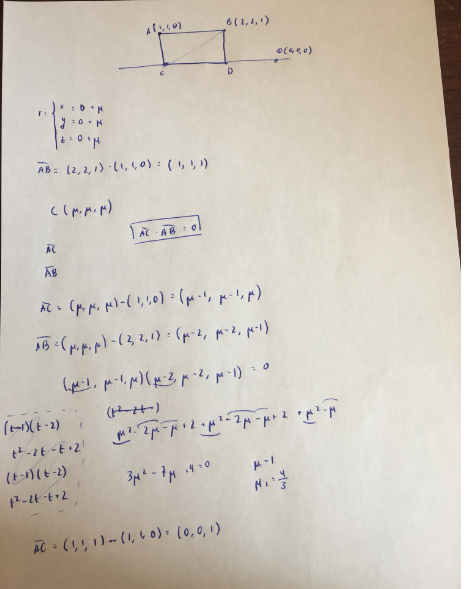 A(1,1,0) B(2,2,1)
O(0,0,0)
C D
r: { x = 0 + μ
y = 0 + μ
z = 0 + μ
AB = (2,2,1) - (1,1,0) = (1,1,1)
C (μ, μ, μ)
AC · AB = 0
AC
AB
AC = (μ, μ, μ) - (1,1,0) = (μ-1, μ-1, μ)
AB = (μ, μ, μ) - (2,2,1) = (μ-2, μ-2, μ-1)
(μ-1, μ-1, μ)(μ-2, μ-2, μ-1) = 0
(t-1)(t-2)
t²-2t-t+2
(t-1)(t-2)
t²-2t-t+2
(t²-2t-)
μ²-2μ-μ+2+μ²-2μ-μ+2+μ²-μ
3μ²-7μ+4=0
μ-1
μ₂=4/3
AC = (1,1,1) - (1,1,0) = (0,0,1)